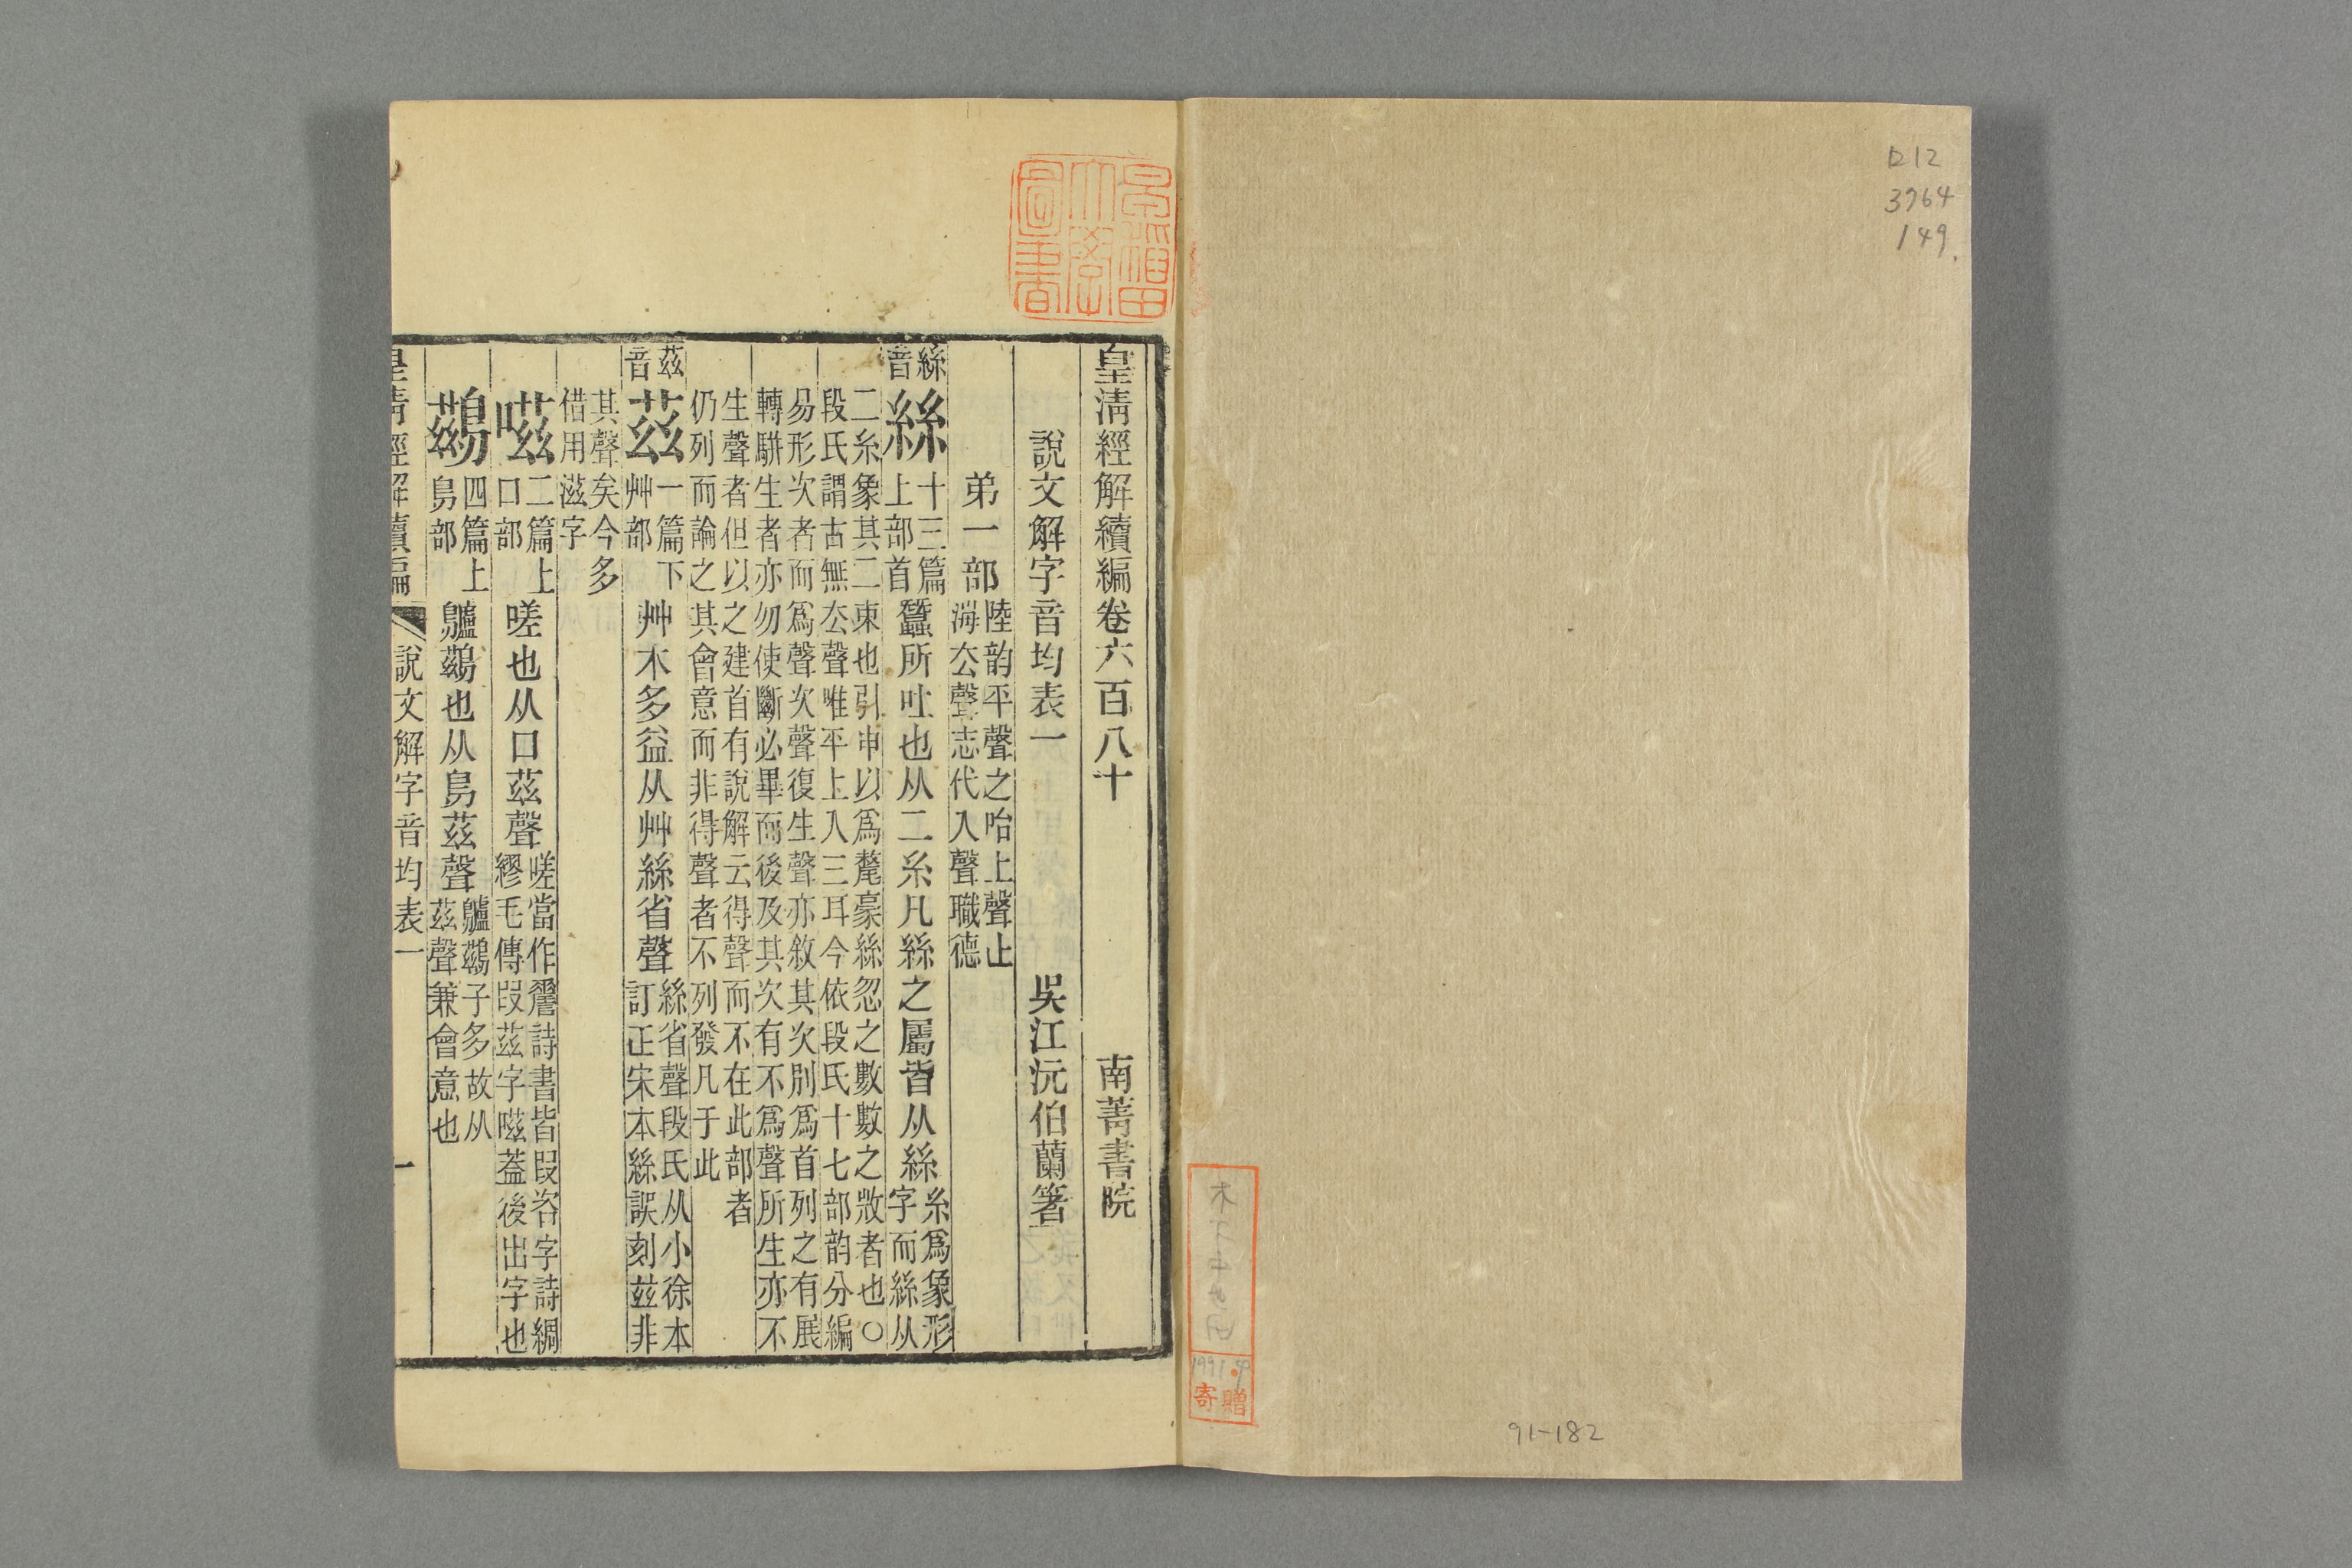 D12
3764
149.
寄贈
91-182
皇清經解續編卷六百八十
南菁書院
說文解字音均表一
吳江沅伯蘭箸
弟一部
陸韵平聲之咍上聲止
海去聲志代入聲職德
絲
音
絲
十三篇
上部首
蠶所吐也从二糸凡絲之屬皆从絲
糸爲象形
字而絲从
二糸象其二束也引申以爲氂豪絲忽之數數之㪚者也○
段氏謂古無去聲唯平上入三耳今依段氏十七部韵分編
易形次者而爲聲次聲復生聲亦敘其次別爲首列之有展
轉駢生者亦勿使斷必畢而後及其次有不爲聲所生亦不
生聲者但以之建首有說解云得聲而不在此部者
仍列而論之其會意而非得聲者不列發凡于此
茲
音
茲
一篇下
艸部
艸木多益从艸絲省聲
絲省聲段氏从小徐本
訂正宋本絲誤刻玆非
其聲矣今多
借用滋字
嗞
二篇上
口部
嗟也从口茲聲
嗟當作𧪰詩書皆叚咨字詩綢
繆毛傳叚茲字嗞葢後出字也
鷀
四篇上
鳥部
鸕鷀也从鳥茲聲
鸕鷀子多故从
茲聲兼會意也
皇清經解續編
說文解字音均表一
一